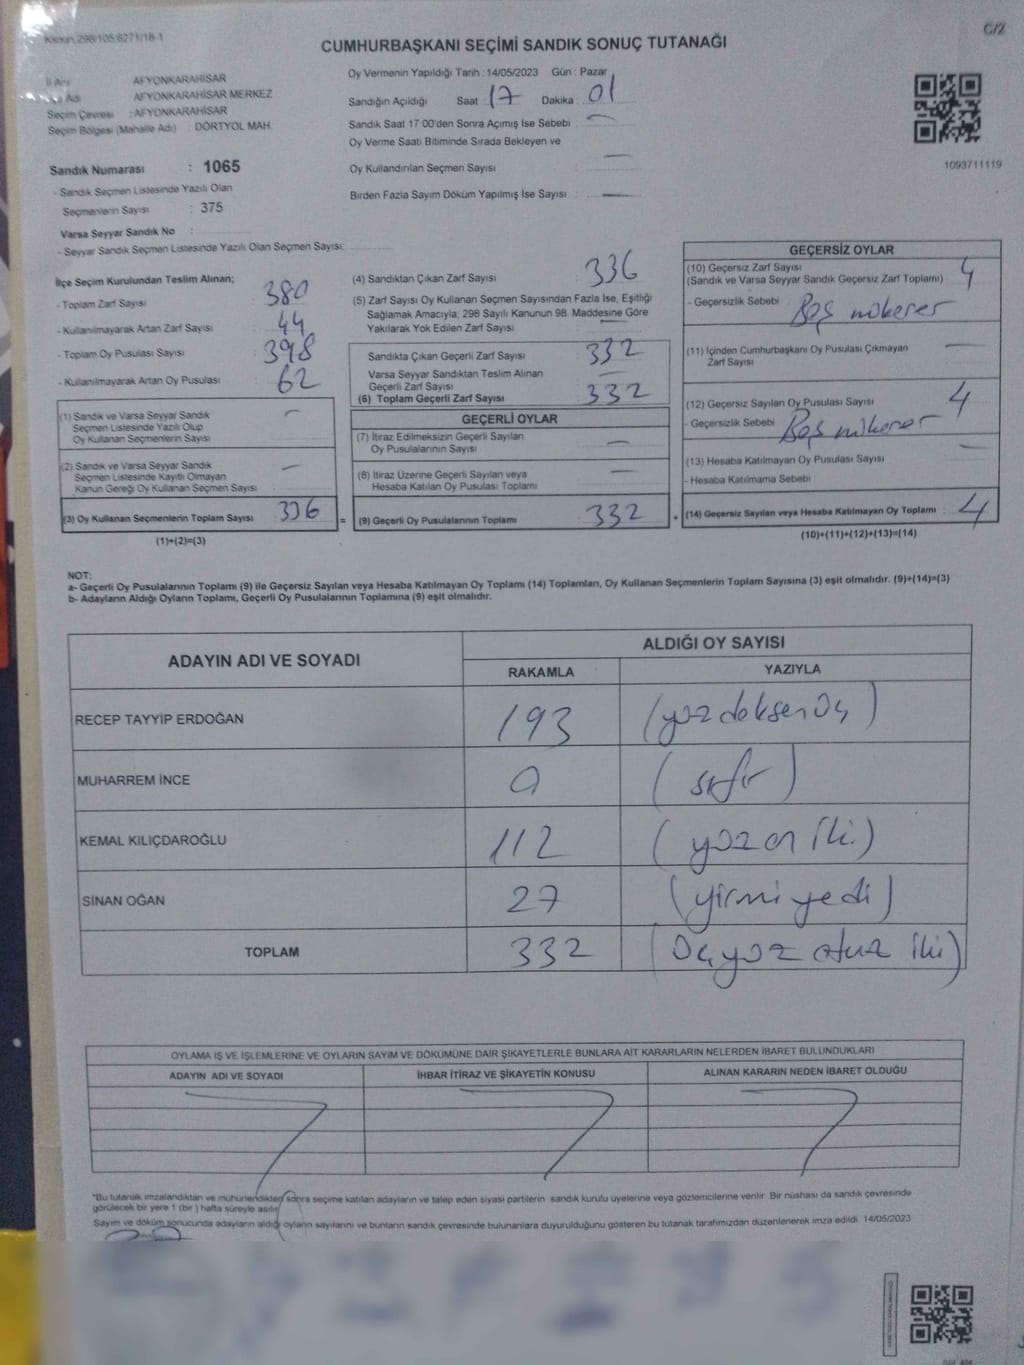 Kanun 298/105:6271/18-1
C/2
CUMHURBAŞKANI SEÇİMİ SANDIK SONUÇ TUTANAĞI
İl Adı AFYONKARAHİSAR
Adı AFYONKARAHİSAR MERKEZ
Seçim Çevresi : AFYONKARAHİSAR
Seçim Bölgesi (Mahalle Adı) : DÖRTYOL MAH.
Sandık Numarası : 1065
- Sandık Seçmen Listesinde Yazılı Olan
Seçmenlerin Sayısı : 375
Varsa Seyyar Sandık No :
- Seyyar Sandık Seçmen Listesinde Yazılı Olan Seçmen Sayısı:
Oy Vermenin Yapıldığı Tarih : 14/05/2023 Gün : Pazar
Sandığın Açıldığı Saat 17 Dakika : 01
Sandık Saat 17:00'den Sonra Açımış İse Sebebi : —
Oy Verme Saati Bitiminde Sırada Bekleyen ve
Oy Kullandırılan Seçmen Sayısı —
Birden Fazla Sayım Döküm Yapılmış İse Sayısı : —
1093711119
İlçe Seçim Kurulundan Teslim Alınan;
- Toplam Zarf Sayısı : 380
- Kullanılmayarak Artan Zarf Sayısı : 44
- Toplam Oy Pusulası Sayısı : 398
- Kullanılmayarak Artan Oy Pusulası : 62
(1) Sandık ve Varsa Seyyar Sandık
Seçmen Listesinde Yazılı Olup
Oy Kullanan Seçmenlerin Sayısı —
(2) Sandık ve Varsa Seyyar Sandık
Seçmen Listesinde Kayıtlı Olmayan
Kanun Gereği Oy Kullanan Seçmen Sayısı —
(3) Oy Kullanan Seçmenlerin Toplam Sayısı 336
(1)+(2)=(3)
(4) Sandıktan Çıkan Zarf Sayısı : 336
(5) Zarf Sayısı Oy Kullanan Seçmen Sayısından Fazla İse, Eşitliği
Sağlamak Amacıyla; 298 Sayılı Kanunun 98. Maddesine Göre
Yakılarak Yok Edilen Zarf Sayısı : —
Sandıkta Çıkan Geçerli Zarf Sayısı : 332
Varsa Seyyar Sandıktan Teslim Alınan
Geçerli Zarf Sayısı : —
(6) Toplam Geçerli Zarf Sayısı : 332
GEÇERLİ OYLAR
(7) İtiraz Edilmeksizin Geçerli Sayılan
Oy Pusulalarının Sayısı : —
(8) İtiraz Üzerine Geçerli Sayılan veya
Hesaba Katılan Oy Pusulası Toplamı : —
= (9) Geçerli Oy Pusulalarının Toplamı : 332
GEÇERSİZ OYLAR
(10) Geçersiz Zarf Sayısı
(Sandık ve Varsa Seyyar Sandık Geçersiz Zarf Toplamı) : 4
- Geçersizlik Sebebi : Boş mükerer
(11) İçinden Cumhurbaşkanı Oy Pusulası Çıkmayan
Zarf Sayısı —
(12) Geçersiz Sayılan Oy Pusulası Sayısı : 4
- Geçersizlik Sebebi : Boş mükerer
(13) Hesaba Katılmayan Oy Pusulası Sayısı : —
- Hesaba Katılmama Sebebi :
+ (14) Geçersiz Sayılan veya Hesaba Katılmayan Oy Toplamı : 4
(10)+(11)+(12)+(13)=(14)
NOT:
a- Geçerli Oy Pusulalarının Toplamı (9) ile Geçersiz Sayılan veya Hesaba Katılmayan Oy Toplamı (14) Toplamları, Oy Kullanan Seçmenlerin Toplam Sayısına (3) eşit olmalıdır. (9)+(14)=(3)
b- Adayların Aldığı Oyların Toplamı, Geçerli Oy Pusulalarının Toplamına (9) eşit olmalıdır.
ADAYIN ADI VE SOYADI ALDIĞI OY SAYISI
RAKAMLA YAZIYLA
RECEP TAYYİP ERDOĞAN 193 (yüzdoksenüç)
MUHARREM İNCE 0 (sıfır)
KEMAL KILIÇDAROĞLU 112 (yüzon iki)
SİNAN OĞAN 27 (yirmi yedi)
TOPLAM 332 (üçyüz otuz iki)
OYLAMA İŞ VE İŞLEMLERİNE VE OYLARIN SAYIM VE DÖKÜMÜNE DAİR ŞİKAYETLERLE BUNLARA AİT KARARLARIN NELERDEN İBARET BULUNDUKLARI
ADAYIN ADI VE SOYADI İHBAR İTİRAZ VE ŞİKAYETİN KONUSU ALINAN KARARIN NEDEN İBARET OLDUĞU
*Bu tutanak imzalandıktan ve mühürlendikten sonra seçime katılan adayların ve talep eden siyasi partilerin sandık kurulu üyelerine veya gözlemcilerine verilir. Bir nüshası da sandık çevresinde
görülecek bir yere 1 (bir) hafta süreyle asılır.
Sayım ve döküm sonucunda adayların aldığı oyların sayılarını ve bunların sandık çevresinde bulunanlara duyurulduğunu gösteren bu tutanak tarafımızdan düzenlenerek imza edildi. 14/05/2023